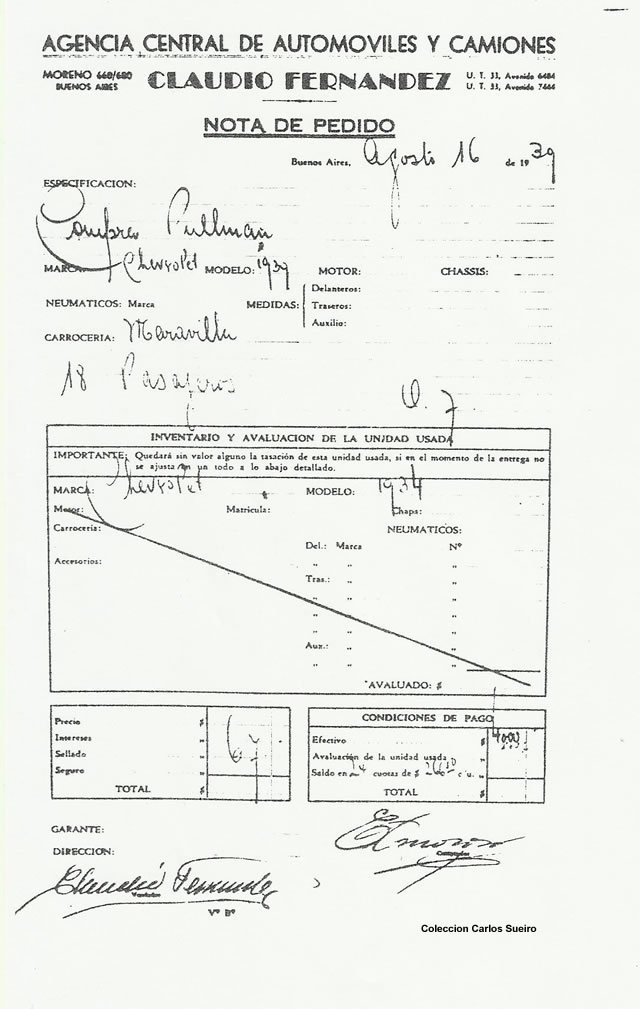 AGENCIA CENTRAL DE AUTOMOVILES Y CAMIONES
MORENO 660/680
BUENOS AIRES
CLAUDIO FERNANDEZ
U. T. 33, Avenida 6484
U. T. 33, Avenida 7464
NOTA DE PEDIDO
Buenos Aires, Agosto 16 de 1939
ESPECIFICACION:
Pullman
MARCA: Chevrolet MODELO: 1939 MOTOR: CHASSIS:
NEUMATICOS: Marca MEDIDAS: Delanteros:
Traseros:
Auxilio:
CARROCERIA: Maravilla
18 Pasajeros
INVENTARIO Y AVALUACION DE LA UNIDAD USADA
IMPORTANTE: Quedará sin valor alguno la tasación de esta unidad usada, si en el momento de la entrega no
se ajusta en un todo a lo abajo detallado.
MARCA: Chevrolet MODELO: 1934
Motor: Matrícula: Chapa:
Carrocería: NEUMATICOS:
Del.: Marca Nº
Accesorios: „ „ „
Tras.: „ „
„ „ „
„ „ „
Aux.: „ „
„ „ „
AVALUADO: $
Precio $
Intereses „
Sellado „
Seguro „
TOTAL $
CONDICIONES DE PAGO
Efectivo $
Avaluación de la unidad usada „
Saldo en 24 cuotas de $ c/u. „
TOTAL $
GARANTE:
DIRECCION:
Claudio Fernandez
Vº Bº
Coleccion Carlos Sueiro